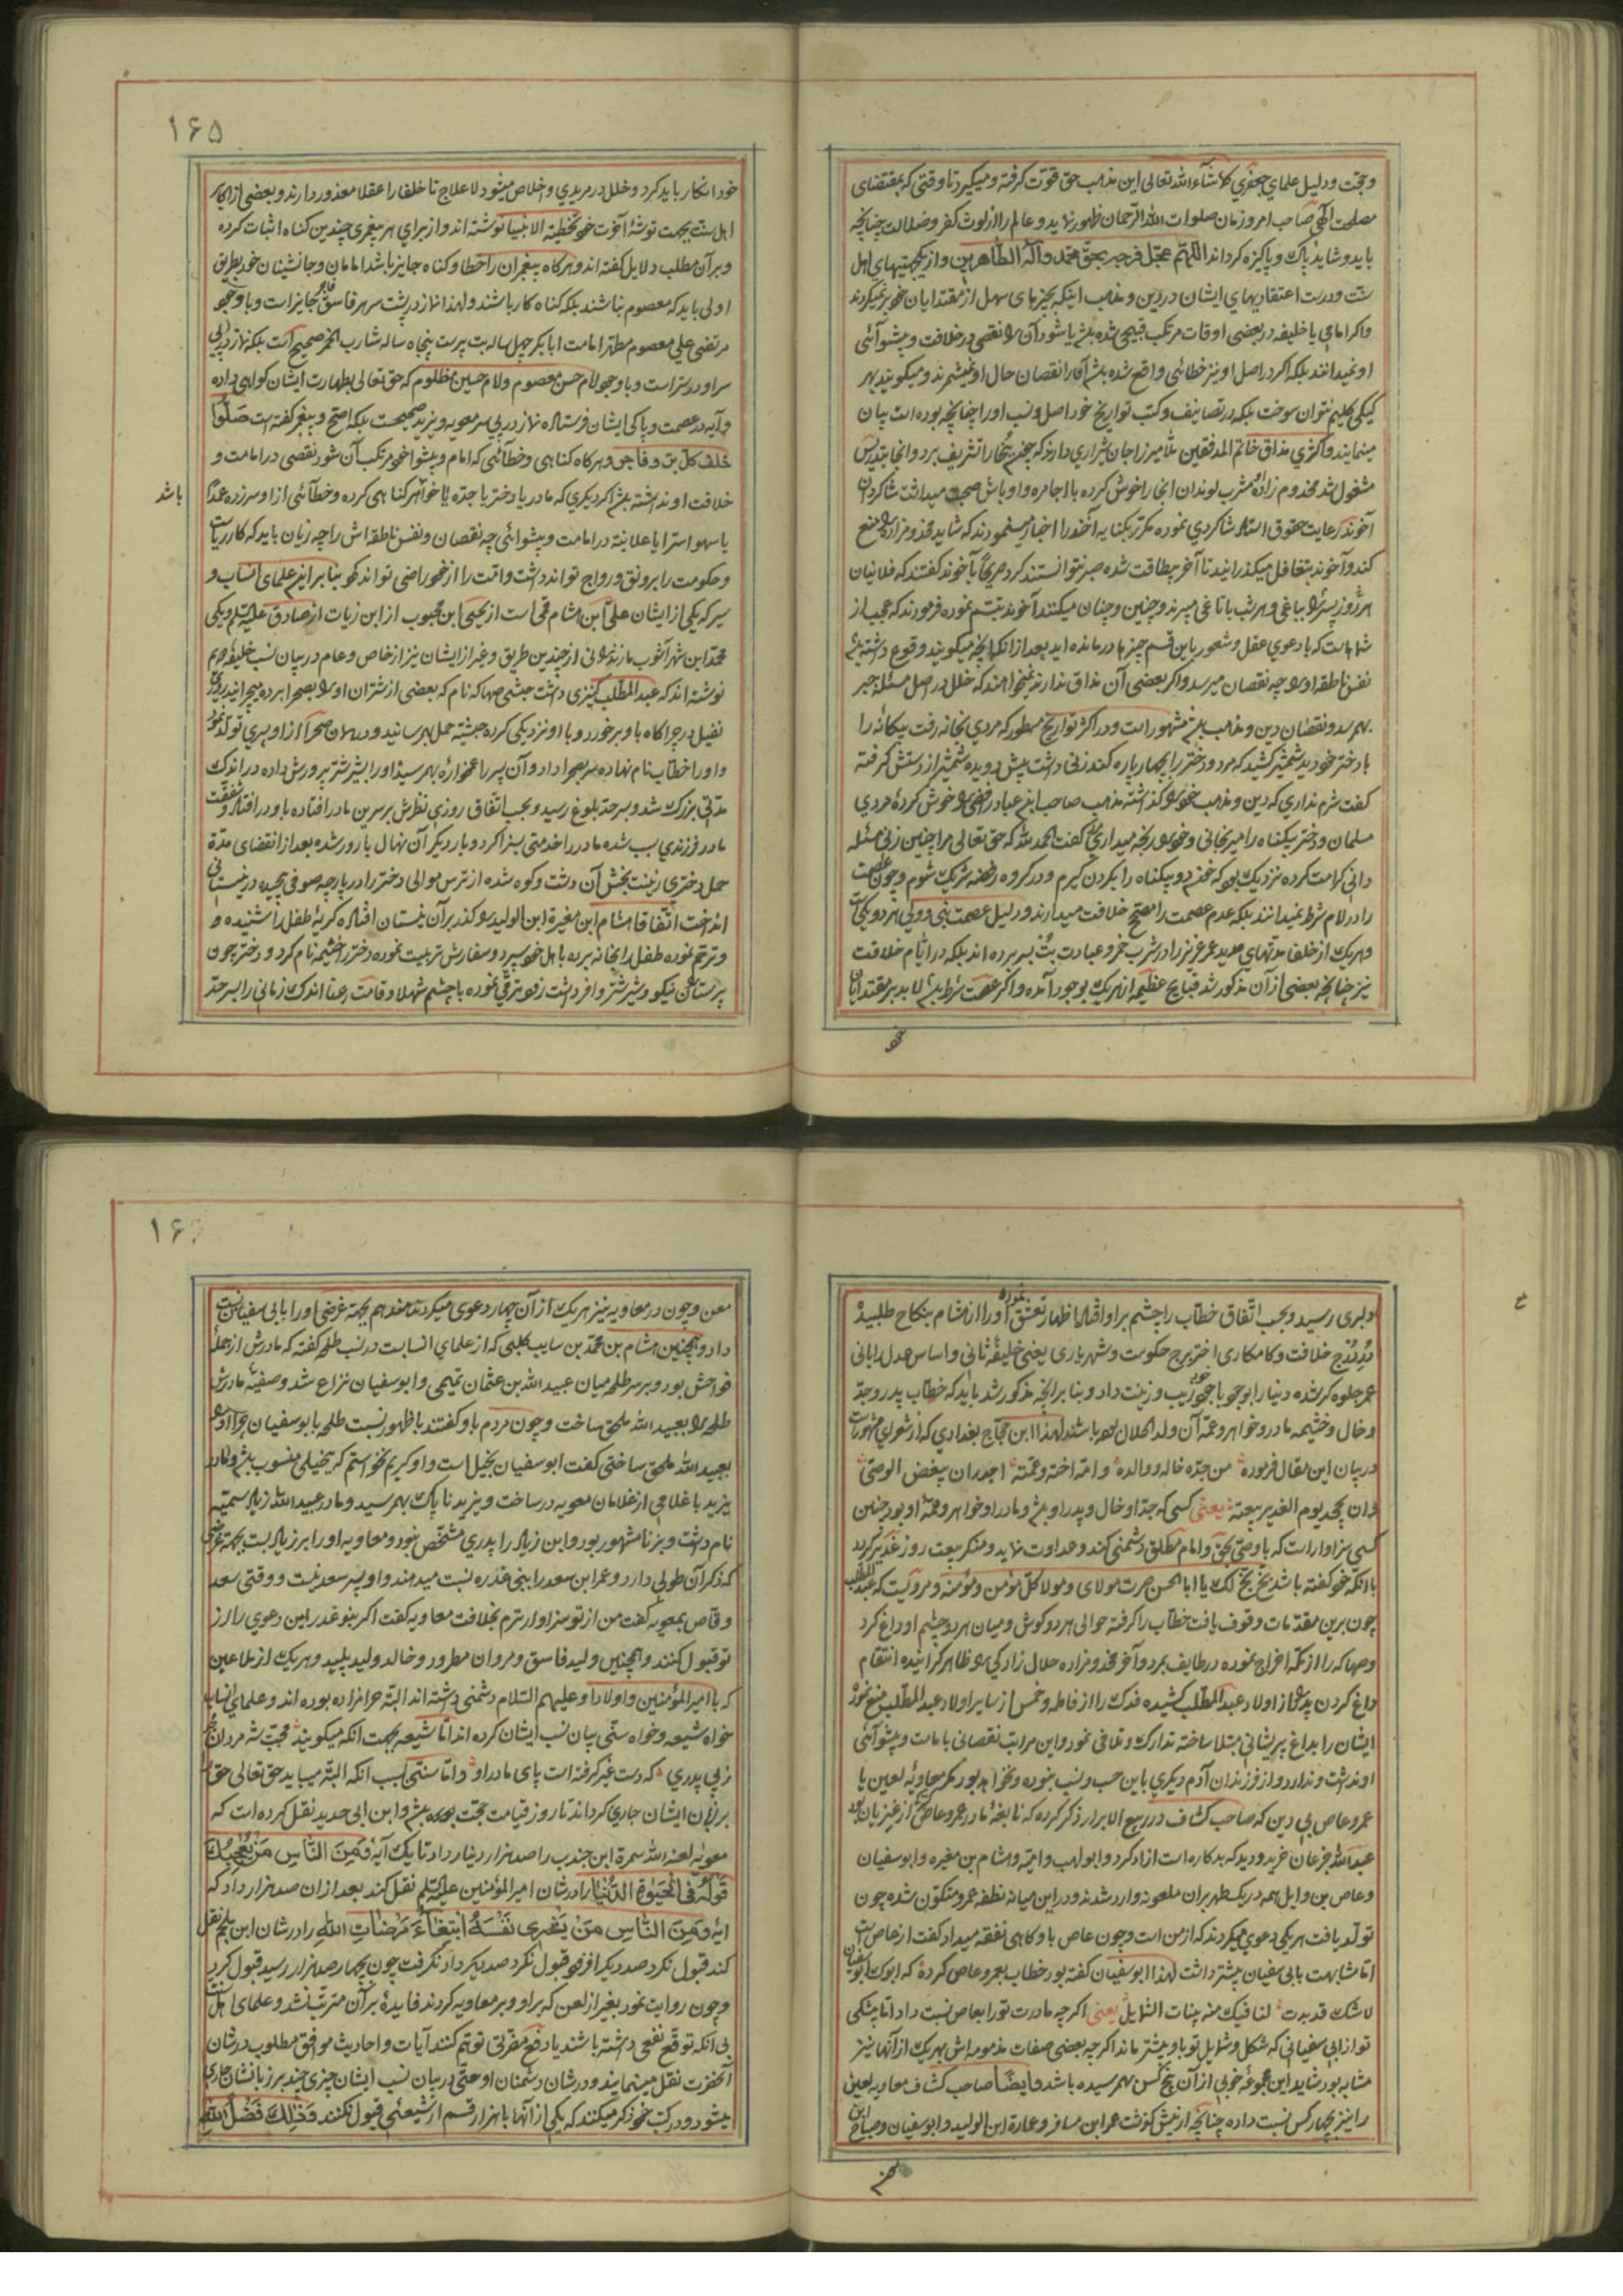 و حجّت و دلیل علمای جعفری کلا شآء الله تعالی این مذهب حق قوت گرفته و میگیرد تا وقتی که بمقتضای
مصلحت الهی صاحب امر و زمان صلوات الله الرحمان ظهور نماید و عالم را از لوث کفر و ضلالت چنانچه
باید و شاید پاک و پاکیزه گرداند اللّهم عجّل فرجه بحقّ محمّد وآله الطّاهرین و از یکجهتیهای اهل
سنّت و درست اعتقادیهای ایشان در دین و مذهب اینکه بچیزهای سهل از مقتدایان خود بر نمیگردند
و اگر امامی یا خلیفه در بعضی اوقات مرتکب قبیحی شده باشد یا شود آن را نقصی در خلافت و پیشوائی
او نمیدانند بلکه اگر در اصل او نیز خطائی واقع شده باشد آنرا نقصان حال او نمیشمرند و میگویند بهر
کیکی گلیم نتوان سوخت بلکه در تصانیف و کتب تواریخ خود اصل و نسب او را چنانچه بوده است بیان
مینمایند و اکثری مذاق خاتم المدققین ملّا میرزا جان شیرازی دارند که چند بخارا تشریف برد و آنجا بتدریس
مشغول شد مخدوم زاده مشرب لوندان آنجا را خوش کرده با اجامره و اوباش صحبت میداشت شاگردان
آخوند رعایت حقوق استاد شاگردی نموده مکرر بکنایه آخوند را اخبار مینمودند که شاید مخدوم زاده را منع
کند و آخوند بتغافل میگذرانید تا آخر بیطاقت شده صبر نتوانستند کرد صریحاً بآخوند گفتند که فلانیان
هر روز پسر را بباغی و هر شب باتاغی میبرند و چنین و چنان میکنند آخوند تبسّم نموده فرمودند که عجب از
شماست که با دعوی عقل و شعور باین قسم چیزها درمانده اید بعد از آنکه آنچه میگویند وقوع داشته باشد
نفس ناطقه او را چه نقصان میرسد و اگر بعضی آن مذاق ندارند نمیخواهند که خلل در اصل مسئله جبر
بهم رسد و نقصان دین و مذهب باشد مشهور است و در اکثر تواریخ مسطور که مردی بخانه رفت بیگانه را
با دختر خود دید شمشیر کشید که مرد و دختر را چهار پاره کند زنی داشت پیش دویده شمشیر از دستش گرفته
گفت شرم نداری که دین و مذهب خود را گذاشته مذهب صاحب ابن عباد رافضی را خوش کرده مردی
مسلمان و دختر بیگناه را میرنجانی و خود را رنجه میداری گفت الحمد لله که حق تعالی مرا چنین زنی مسئله
دانی کرامت کرده نزدیک بود که خون دو بیگناه را بگردن گیرم و در گروه رفضه شریک شوم و چون عصمت
را در امام شرط نمیدانند بلکه عدم عصمت را مصحّح خلافت میدارند و دلیل عصمت نبی و ولی هر دو یکی است
و هر یک از خلفا مدّتهای مدید عمر عزیز را در شرب خمر و عبادت بت بسر برده اند بلکه در ایّام خلافت
نیز چنانچه بعضی از آن مذکور شد قبایح عظیمه از هر یک بوجود آمده و اگر عصمت شرط باشد لابد بر مقتدایان
خود
۱۶۵
خود انکار باید کرد و خلل در مریدی و اخلاص میشود لاعلاج تا خلفا را عقلا معذور دارند و بعضی از اکابر
اهل سنّت بجهت توشهٔ آخرت خود تخطئة الانبیا نوشته اند و از برای هر پیغمبری چندین گناه اثبات کرده
و بر آن مطلب دلایل گفته اند و هر گاه پیغمبران را خطا و گناه جایز باشد امامان و جانشینان خود بطریق
اولی باید که معصوم نباشند بلکه گناه کار باشند و لهذا نماز در پشت سر هر فاسق فاجر جایز است و با وجود
مرتضی علی معصوم مطهّر امامت ابابکر چهل ساله بت پرست پنجاه ساله شارب الخمر صحیح است بلکه نماز در پی
سر او درست است و با وجود امام حسن معصوم و امام حسین مظلوم که حق تعالی بطهارت ایشان گواهی داده
و آیه در عصمت و پاکی ایشان فرستاده نماز در پی سر معویه و یزید صحیحست بلکه اصحّ و پیغمبر گفته است صَلّوا
خلف کلّ بَرّ و فاجر و هر گاه گناهی و خطائی که امام و پیشوا خود مرتکب آن شود نقصی در امامت و
خلافت او نداشته باشد اگر دیگری که مادر یا دختر یا جدّه یا خواهر گناهی کرده و خطائی از او سرزده عمداً باشد
یا سهوا سِرّا یا علانیة در امامت و پیشوائی چه نقصان و نفس ناطقه اش را چه زیان باید که کار ریاست
و حکومت را برونق و رواج تواند داشت و امّت را از خود راضی تواند کرد بنا بر این علمای انساب و
سیر که یکی از ایشان علی ابن هشام قمی است از یحیی ابن محبوب از ابن زیات از صادق علیه السلم و یکی
محمّد ابن شهر آشوب مازندرانی از چندین طریق و غیر از ایشان نیز از خاص و عام در بیان نسب خلیفه دویم
نوشته اند که عبد المطّلب کنیزی داشت حبشی صهاکه نام که بعضی از شتران او را بصحرا برده میچرانید روزی
نفیل در چراگاه باو برخورد و با او نزدیکی کرده حبشیّه حمل بهم رسانید و در همان صحرا از او پسری تولّد نمود
و او را خطّاب نام نهاده سر بصحرا داد و آن پسر را غمخواره بهم رسیده او را بشیر شتر پرورش داده در اندک
مدّتی بزرگ شد و بسر حدّ بلوغ رسید و بحسب اتّفاق روزی نظرش بر سرین مادر افتاده باو در افتاد و شفقت
مادر فرزندی سبب شده مادر را خدمتی بسزا کرد و بار دیگر آن نهال بارور شده بعد از انقضای مدّة
حمل دختری زینت بخش آن دشت و کوه شده از ترس موالی دختر را در پارچه صوفی پیچیده در نیستانی
انداخت اتّفاقا هشام ابن مغیرة ابن الولید را گذر بر آن نیستان افتاده گریهٔ طفل را شنیده و
و ترحّم نموده طفل را بخانه برده باهل خود سپرد و سفارش تربیت نموده دختر را خثیمه نام کرد و دختر چون
پرستاری نیکو و شیر شتر وافر داشت زود ترقّی نموده با چشم شهلا و قامت رعنا اندک زمانی را بسر حدّ
دلبری رسید و بحسب اتّفاق خطّاب را چشم بر او افتاد اظهار تعشّق نموده او را از هشام بنکاح طلبیده
دُرّ دُرج خلافت و کامکاری اختر برج حکومت و شهریاری یعنی خلیفهٔ ثانی و اساس عدل را بانی
عمر جلوه گر شده دنیا را بوجود با جود خود زیب و زینت داد و بنا بر آنچه مذکور شد باید که خطّاب پدر و جدّ
و خال و خثیمه مادر و خواهر و عمّه آن ولد الحلال بوده باشند لهذا ابن حجّاج بغدادی که از شعرای مشهور است
در بیان این مقال فرموده من جدّه خاله و والده و امّه اخته و عمّته اجدر ان یبغض الوصیّ
و ان یجحد یوم الغدیر بیعته یعنی کسی که جد او خال و پدر او باشد و مادر او خواهر و عمّهٔ او بود چنین
کسی سزاوار است که با وصیّ بحقّ و امام مطلق دشمنی کند و عداوت نماید و منکر بیعت روز غدیر گردد
با آنکه خود گفته باشد بخّ بخّ لک یا ابا الحسن صرت مولای و مولا کلّ مؤمن و مؤمنه و مرویست که عبد المطّلب
چون بر این مقدّمات وقوف یافت خطّاب را گرفته حوالی هر دو گوش و میان هر دو چشم او داغ کرد
و صهاکه را از مکّه اخراج نموده در طایف بمرد و آخر مخدوم زاده حلال زادگی را ظاهر گردانیده انتقام
داغ کردن پدر را از اولاد عبد المطّلب کشیده فدک را از فاطمه و خمس از سایر اولاد عبد المطّلب منع نمود
ایشان را بداغ پریشانی مبتلا ساخته تدارک و تلافی نمود و این مراتب نقصانی بامامت و پیشوائی
او نداشت و ندارد و از فرزندان آدم دیگری باین حسب و نسب نبوده و نخواهد بود مگر معاویهٔ لعین یا
عمرو عاص بی دین که صاحب کشّاف در ربیع الابرار ذکر کرده که نابغهٔ مادر عمرو عاص کنیز از عنزیان بود
عبد الله جزعان خرید و دید که بدکاره است ازاد کرد و ابولهب و امیّه و هشام بن مغیره و ابوسفیان
و عاص بن وایل همه در یک طهر بر آن ملعونه وارد شدند و در این میانه نطفه عمرو متکوّن شده چون
تولّد یافت هر یکی دعوی میکردند که از من است و چون عاص باو گاهی نفقه میداد گفت از عاص است
امّا شباهت بابی سفیان بیشتر داشت لهذا ابوسفیان گفته بود خطاب بعمرو عاص کرده که ابوک ابوسفیان
لا شک قد بدت لنا فیک منه بیّنات الشّمایل یعنی اگر چه مادرت تو را بعاص نسبت داد امّا بیشکی
تو از ابی سفیانی که شکل و شمایل تو باو بیشتر ماند اگر چه بعضی صفات مذمومه اش بهر یک از آنها نیز
مشابه بود شاید این مجموعهٔ خوبی از آن پنج کس بهم رسیده باشد و ایضاً صاحب کشّاف معاویه لعین
را نیز بچهار کس نسبت داده چنانچه از پیش گذشت عمر ابن مسافر و عمارة ابن الولید و ابوسفیان و صباح ابن
معن
۱۶۶
معن و چون در معاویه نیز هر یک از آن چهار دعوی میکردند هند هم بجهة غرضی او را بابی سفیان نسبت
داد و همچنین هشام بن محمّد بن سایب کلبی که از علمای انسابست در نسب طلحه گفته که مادرش از جملهٔ
فواحش بود و بر سر طلحه میان عبید الله بن عثمان تمیمی و ابوسفیان نزاع شد و صفیّه مادرش
طلحه را بعبید الله ملحق ساخت و چون مردم باو گفتند با ظهور نسبت طلحه بابوسفیان چرا او را
بعبید الله ملحق ساختی گفت ابوسفیان بخیل است و او کریم نخواستم که ببخیلی منسوب باشد و مادر
یزید با غلامی از غلامان معویه در ساخت و یزید ناپاک بهم رسید و مادر عبید الله زیاد سمیّه
نام داشت و بزنا مشهور بود و ابن زیاد را پدری مشخّص نبود و معاویه او را بر زیاد بست بجهة غرضی
که ذکر آن طولی دارد و عمر ابن سعد را ببنی عذره نسبت میدهند و او پسر سعد نیست و وقتی سعد
وقّاص بمعویه گفت من از تو سزاوارترم بخلافت معاویه گفت اگر بنو عذره این دعوی را از
تو قبول کنند و همچنین ولید فاسق و مروان مطرود و خالد ولید پلید و هر یک از ملاعین
که با امیر المؤمنین و اولاد او علیهم السّلام دشمنی داشته اند البتّه حرامزاده بوده اند و علمای انساب
خواه شیعه و خواه سنّی بیان نسب ایشان کرده اند امّا شیعه بجهت آنکه میگویند محبّت شه مردان مجو
ز بی پدری که دست غیر گرفته است پای مادر او و امّا سنّی بسبب آنکه البتّه میباید حق تعالی حق را
بر زبان ایشان جاری گرداند تا روز قیامت حجّت بوده باشد و ابن ابی حدید نقل کرده است که
معویه لعنه الله سمرة ابن جندب را صد هزار دینار داد تا یک آیهٔ وَمِنَ النَّاسِ مَنْ یُعْجِبُكَ
قَوْلُهُ فِی الْحَیٰوةِ الدُّنْیَا را در شان امیر المؤمنین علیه السّلم نقل کند بعد از ان صد هزار داد که
ایهٔ وَمِنَ النَّاسِ مَنْ یَشْرِی نَفْسَهُ ابْتِغَآءَ مَرْضَاتِ اللهِ را در شان ابن ملجم نقل
کند قبول نکرد صد دیگر افزود قبول نکرد صد دیگر داد نگرفت چون بچهار صد هزار رسید قبول کرد
و چون روایت نمود بغیر از لعن که بر او و بر معاویه کردند فایدهٔ بر آن مترتّب نشد و علمای اهل سنّت
بی آنکه توقّع نفعی داشته باشند یا دفع مضرّتی توهّم کنند آیات و احادیث موافق مطلوب در شان
آنحضرت نقل مینمایند و در شان دشمنان او حتّی در بیان نسب ایشان چیزی چند بر زبانشان جاری
میشود و در کتب خود ذکر میکنند که یکی از آنها با هزار قسم از شیعئی قبول نکنند وَذٰلِكَ فَضْلُ اللهِ